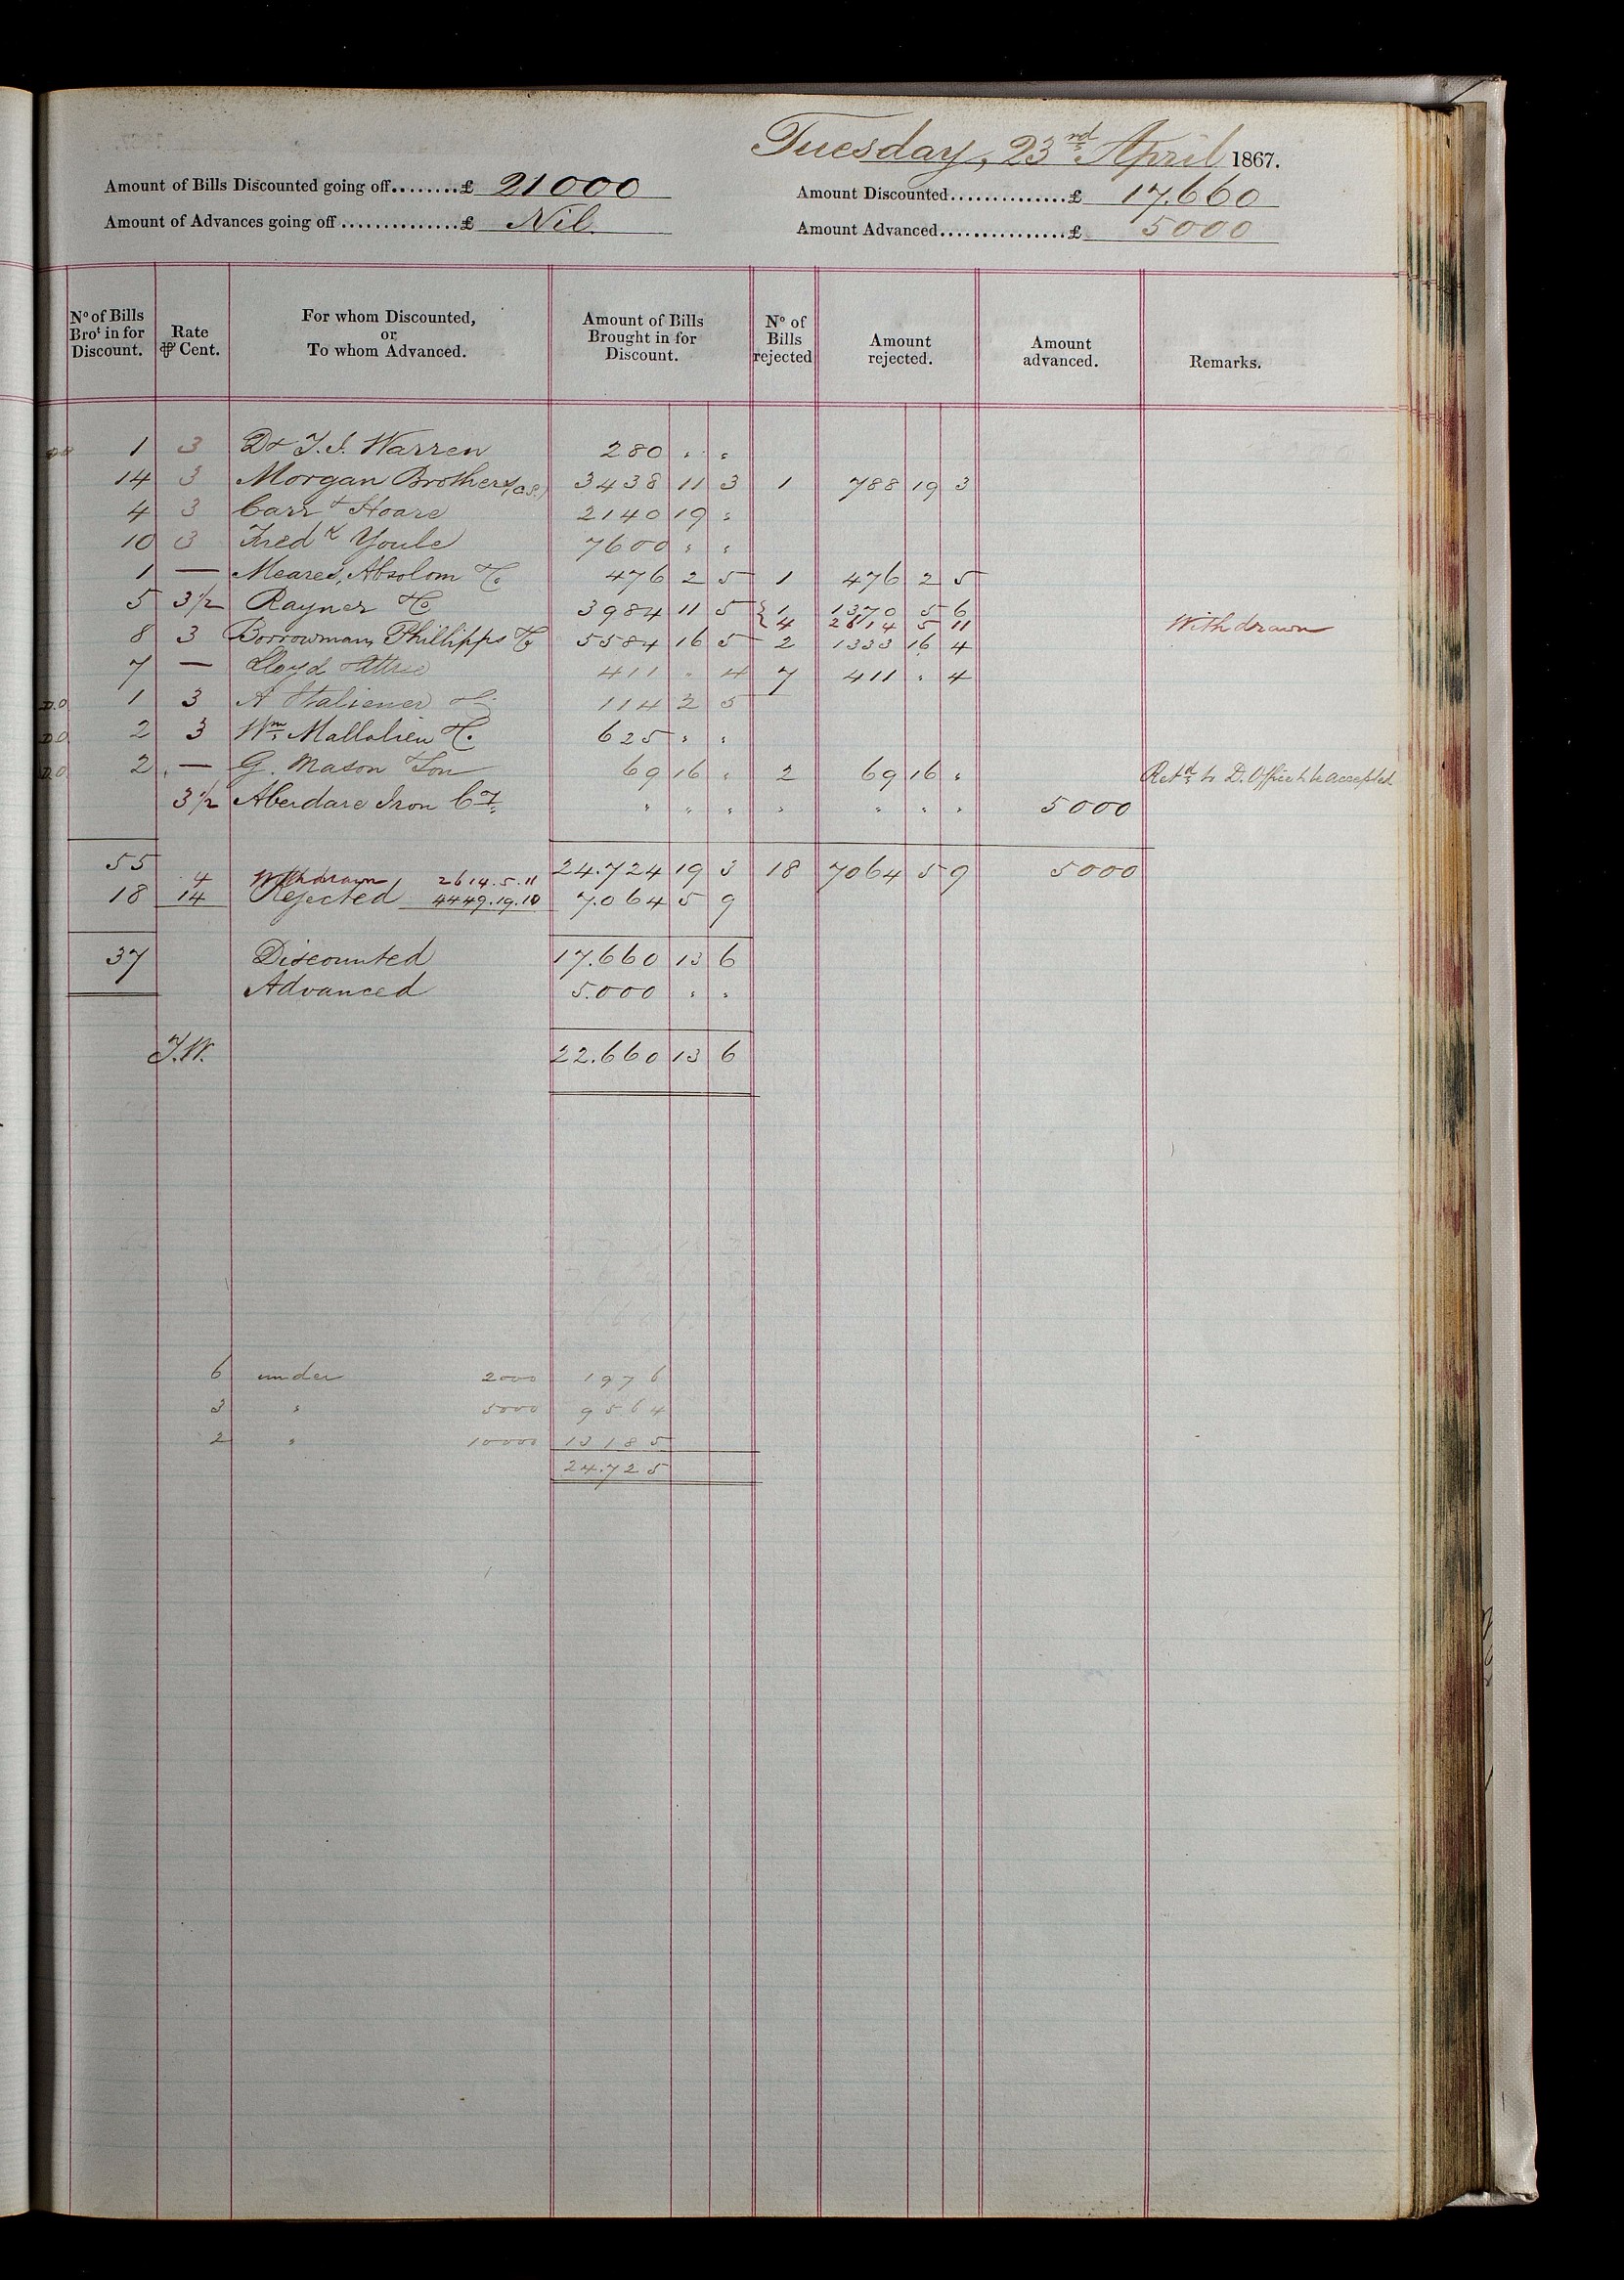 Tuesday, 23rd April 1867.
Amount of Bills Discounted going off........£ 21000 Amount Discounted..............£ 17.660
Amount of Advances going off..............£ Nil. Amount Advanced...............£ 5000
No of Bills Brot in for Discount. Rate ⅌ Cent. For whom Discounted, or To whom Advanced. Amount of Bills Brought in for Discount. No of Bills rejected Amount rejected. Amount advanced. Remarks.
1 3 Dr T. J. Warren 280 " "
14 3 Morgan Brothers (CS) 3438 11 3 1 788 19 3
4 3 Carr & Hoare 2140 19 "
10 3 Fredk Youle 7600 " "
1 — Meares, Absolom &Co 476 2 5 1 476 2 5
5 3½ Rayner &Co 3984 11 5 { 1 1370 5 6
4 2614 5 11 Withdrawn
8 3 Borrowman, Phillipps &Co 5584 16 5 2 1333 16 4
7 — Lloyd 411 " 4 7 411 " 4
D.O 1 3 A Italiener &Co 114 2 5
D.O 2 3 Wm Mallalieu &Co 625 " "
D.O 2 — G. Mason &Son 69 16 " 2 69 16 " Retd to D. Office to be accepted
3½ Aberdare Iron Cy " " " " " " " 5000
55 24.724 19 3 18 7064 5 9 5000
4 Withdrawn 2614.5.11
18 14 Rejected 4449.19.10 7.064 5 9
37 Discounted 17.660 13 6
Advanced 5.000 " "
J.W. 22.660 13 6
6 under 2000 1976
3 " 5000 9564
2 " 10000 13185
24.725